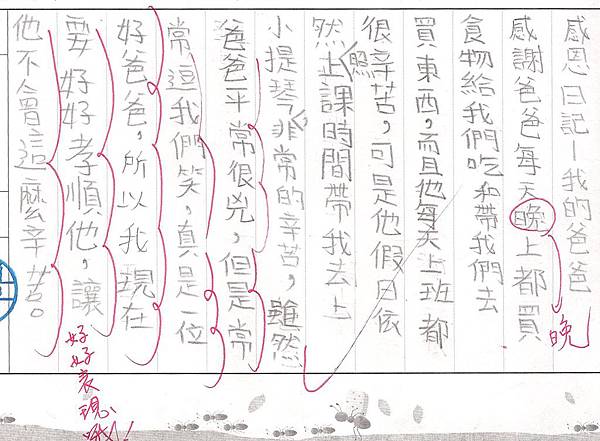 感恩日記—我的爸爸
感謝爸爸每天晚上都買
晚
食物給我們吃和帶我們去
買東西,而且他每天上班都
很辛苦,可是他假日依
然照上課時間帶我去上
小提琴,非常的辛苦,雖然
爸爸平常很兇,但是常
常逗我們笑,真是一位
好爸爸,所以我現在
要好好孝順他,讓
他不會這麼辛苦。
好好表現